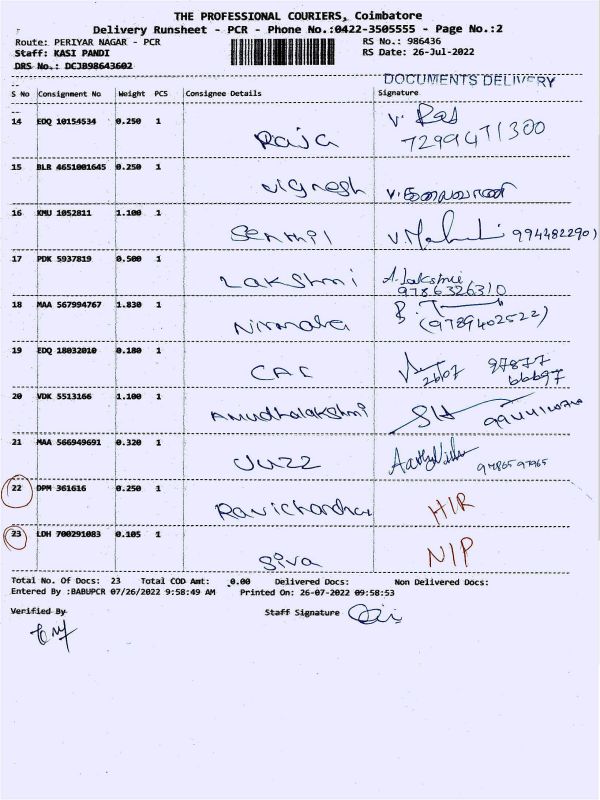 THE PROFESSIONAL COURIERS, Coimbatore
Delivery Runsheet - PCR - Phone No.:0422-3505555 - Page No.:2
Route: PERIYAR NAGAR - PCR
RS No.: 986436
Staff: KASI PANDI
RS Date: 26-Jul-2022
DRS No.: DCJB98643602
DOCUMENTS DELIVERY
S No Consignment No Weight PCS Consignee Details Signature
14 EDQ 10154534 0.250 1
Raja
7299471300
15 BLR 4651001645 0.250 1
Vignesh
16 KMU 1052811 1.100 1
Senthil 9944822901
17 PDK 5937819 0.500 1
Lakshmi A. Lakshmi
9786326310
18 MAA 567994767 1.830 1
Nirmala (9789402522)
19 EDQ 18032010 0.180 1
CAC 26/07 97877
66697
20 VDK 5513166 1.100 1
Amudhalakshmi
21 MAA 566949691 0.320 1
Juzz 9786597965
22 DPM 361616 0.250 1
Ravichandha HIR
23 LDH 700291083 0.105 1
Siva NIP
Total No. Of Docs: 23 Total COD Amt: 0.00 Delivered Docs: Non Delivered Docs:
Entered By :BABUPCR 07/26/2022 9:58:49 AM Printed On: 26-07-2022 09:58:53
Verified By Staff Signature